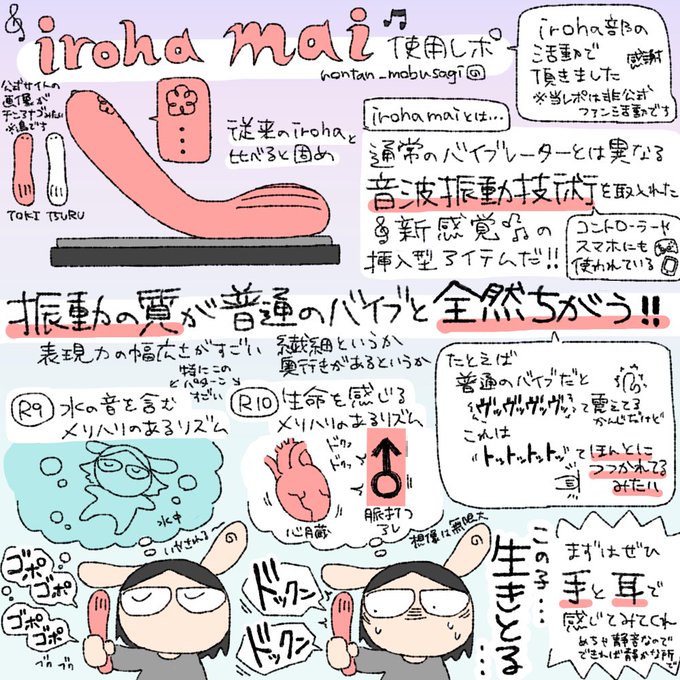 iroha mai 使用レポ
nontan_mobusagi
iroha部の
活動で
頂きました
感謝
※当レポは非公式
ファン活動です
公式サイトの
画像が
チンアナゴみたい
※鳥です
TOKI TSURU
従来のirohaと
比べると固め
iroha maiとは…
通常のバイブレーターとは異なる
音波振動技術を取入れた
新感覚の
挿入型アイテムだ!!
コントローラーや
スマホにも
使われている
振動の質が普通のバイブと全然ちがう!!
表現力の幅広さがすごい
繊細というか
奥行きがあるというか
特にこの
パターン
すごい
R9 水の音を含む
メリハリのあるリズム
R10 生命を感じる
メリハリのあるリズム
たとえば
普通のバイブだと
ヴッヴッヴッヴッって震えてる
かんじだけど
これは
トットットットッって
ほんとに
つつかれてる
みたい
水中
ドクッ
ドクッ
心臓
脈打つ
アレ
いやされる〜
想像は無限大
ゴポ
ゴポ
ゴポ
ゴポ
ブク ブク
ドックン
ドックン
この子…
生きとる…
まずはぜひ
手と耳で
感じてみてくれ
めちゃ静音なので
できれば静かな所で